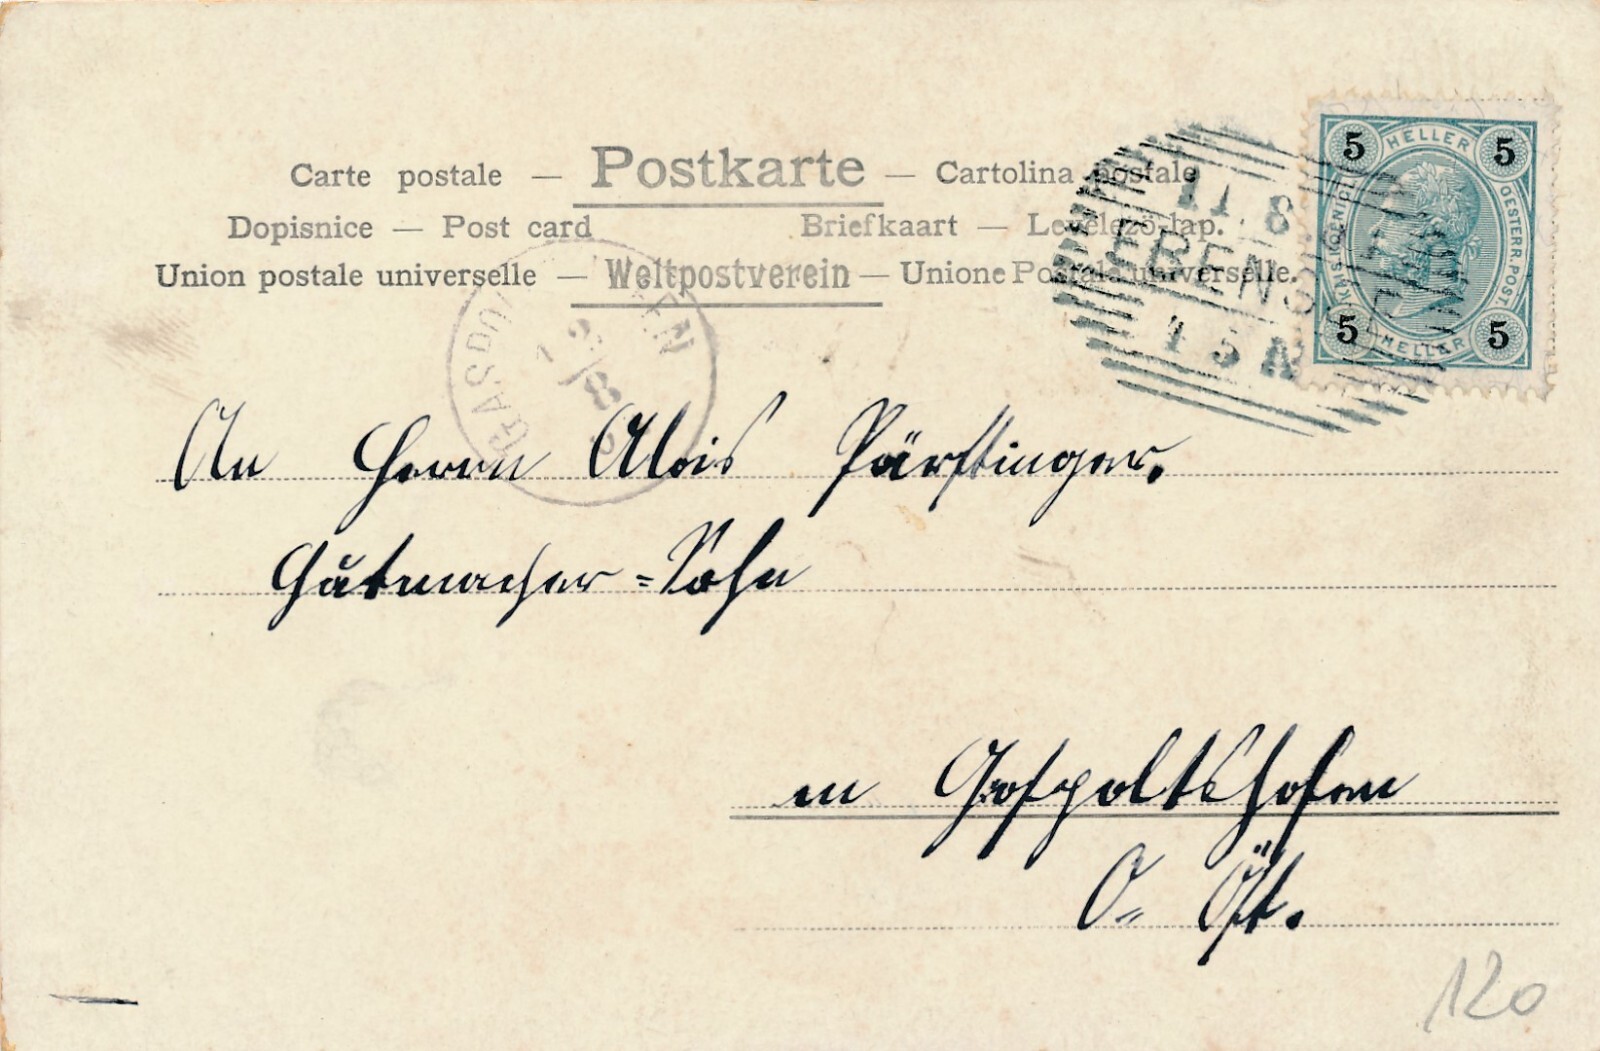 Carte postale — Postkarte — Cartolina postale
Dopisnice — Post card Briefkaart — Levelező-lap.
Union postale universelle — Weltpostverein — Unione Postale universelle.
11. 8.
EBENS
4 5 N
5 HELLER 5
KAIS. KÖNIGL. OESTERR. POST.
5 HELLER 5
12
8
An Herrn Alois Pärftinger.
Hutmacher=Sohn
in Gaspoltshofen
O= Öst.
120